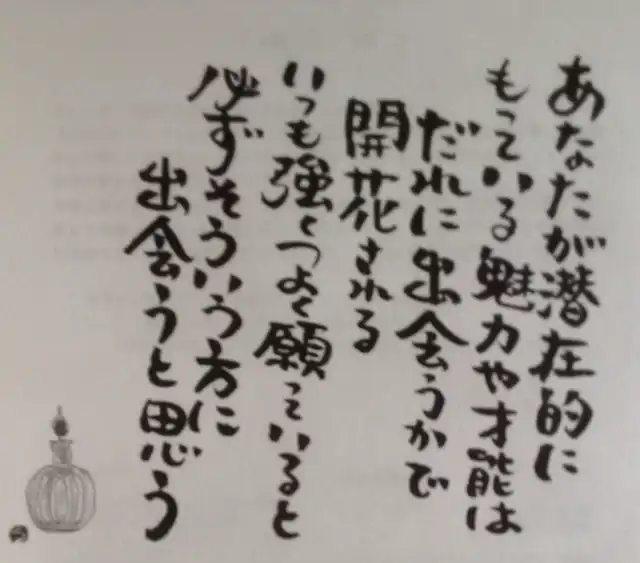 あなたが潜在的に
もっている魅力や才能は
だれに出会うかで
開花される
いつも強くつよく願っていると
必ずそういう方に
出会うと思う